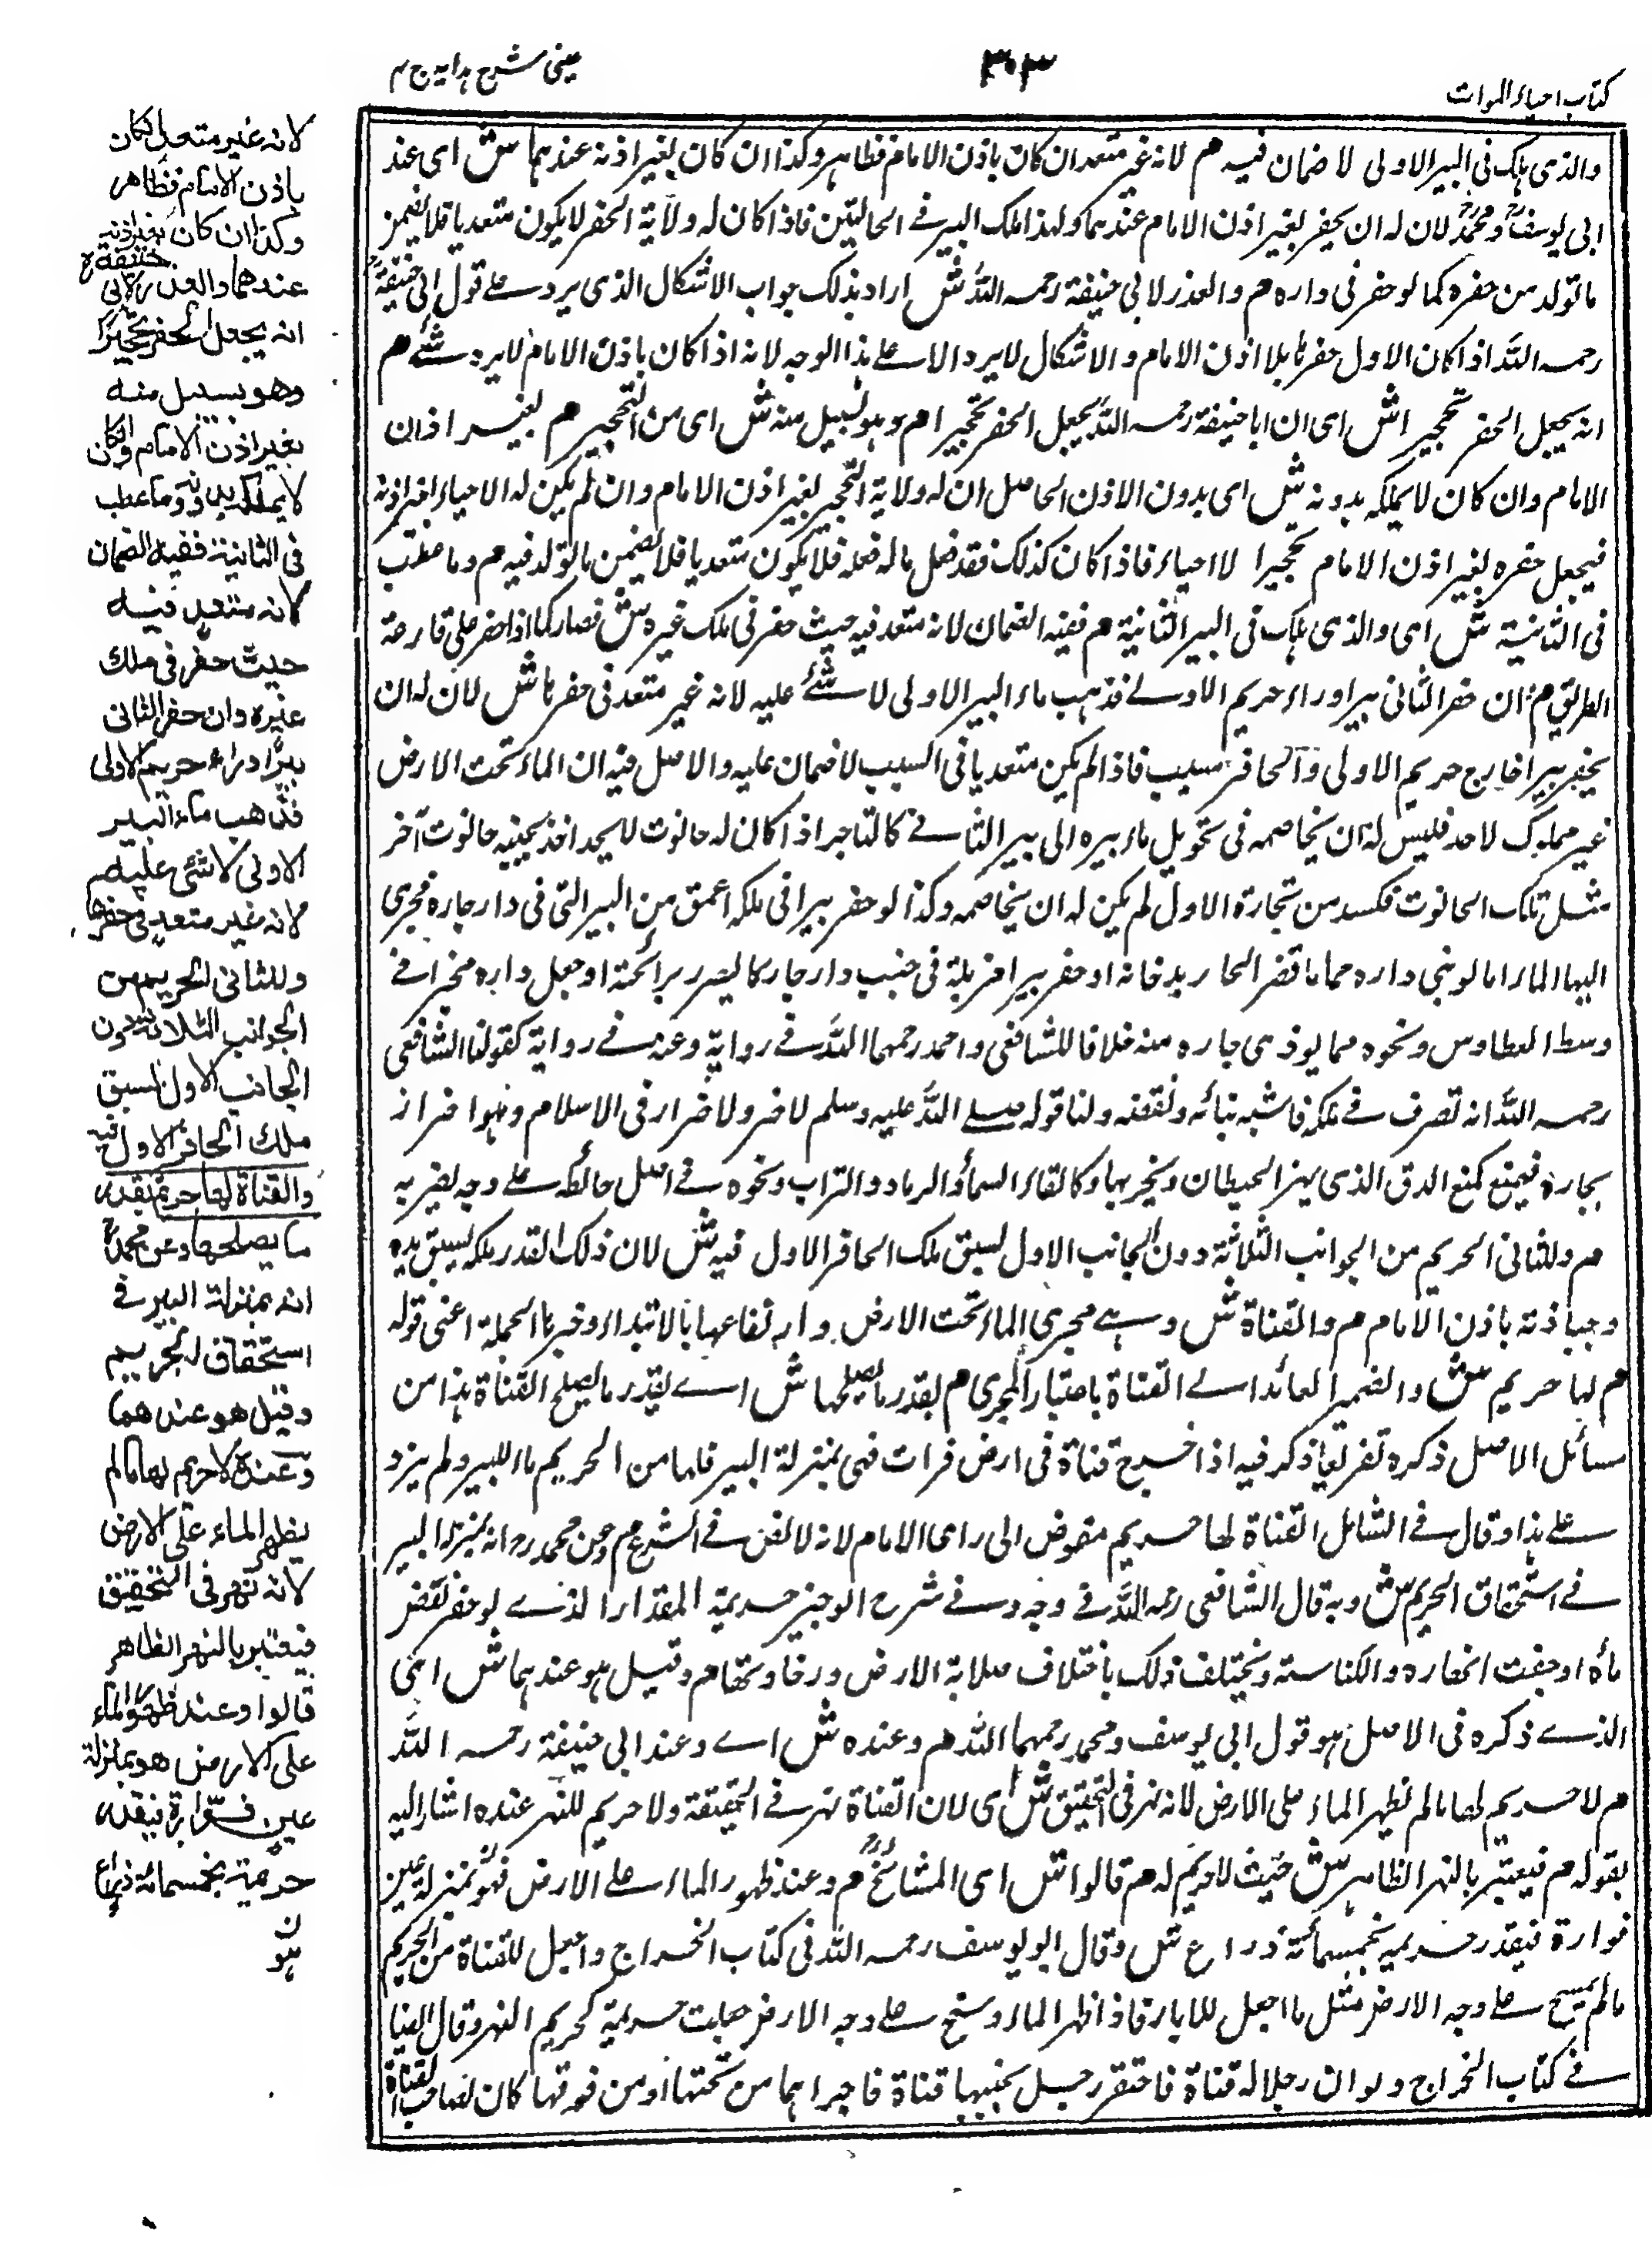 كتاب احياء الموات
٣٠٣
عينى شرح هدايه ج ٤
والذى هلك فى البير الاولى لا ضمان فيه م لانه غير متعد ان كان باذن الامام فظاهر وكذا ان كان بغير اذنه عندهما ش اى عند
ابى يوسف ومحمد لان له ان يحفر بغير اذن الامام عندهما ولهذا الملك البير فى الحالتين فاذا كان له ولاية الحفر لا يكون متعديا فلا يضمن
ما تولد من حفره كما لو حفر فى داره م والعذر لابى حنيفة رحمه الله ش اراد بذلك جواب الاشكال الذى يرد على قول ابى حنيفة
رحمه الله اذا كان الاول حفرها بلا اذن الامام والاشكال لا يرد الا على هذا الوجه لانه اذا كان باذن الامام لا يرد شئ م
انه يجعل الحفر تحجيرا ش اى ان ابا حنيفة رحمه الله يجعل الحفر تحجيرا م وهو بسبيل منه ش اى من التحجير م بغير اذن
الامام وان كان لا يملكه بدونه ش اى بدون الاذن الحاصل ان له ولاية التحجير بغير اذن الامام وان لم يكن له الاحياء بغير اذنه
فيجعل حفره بغير اذن الامام تحجيرا لا احياء فاذا كان كذلك فقد فعل ما له فعله فلا يكون متعديا فلا يضمن ما تولد فيه م وما عطب
فى الثانية ش اى والذى هلك فى البير الثانية م ففيه الضمان لانه متعد فيه حيث حفر فى ملك غيره ش فصار كما اذا حفر على قارعة
الطريق م وان حفر الثانى بيرا وراء حريم الاولى فذهب ماء البير الاولى لا شئ عليه لانه غير متعد فى حفرها ش لان له ان
يحفر بيرا خارج حريم الاولى والحافر مسبب فاذا لم يكن متعديا فى السبب لا ضمان عليه والاصل فيه ان الماء تحت الارض
غير مملوك لاحد فليس له ان يخاصمه فى تحويل ماء بيره الى بير الثانى كالتاجر اذا كان له حانوت لا يجد اخذ بجنبه حانوت آخر
مثل تلك الحانوت فكسد من تجارة الاول لم يكن له ان يخاصمه وكذا لو حفر بيرا فى ملكه اعمق من البير التى فى دار جاره فجرى
اليها الماء اما لو بنى داره حماما فضر الجار بدخانه او حفر بيرا مزبلة فى جنب دار جاره كاليسرر برائحة او جعل داره مخبزا فى
وسط العطاوس ونحوه مما يوذى جاره منه خلافا للشافعى واحمد رحمهما الله فى رواية وعنه فى رواية كقولنا الشافعى
رحمه الله انه تصرف فى ملكه فاشبه بنائه ونقضه ولنا قوله صلى الله عليه وسلم لا ضرر ولا ضرار فى الاسلام وهو اضرار
بجاره فيمنع كمنع الدق الذى يهز الحيطان ويخربها وكالقاء السماد والرماد والتراب ونحوه فى اصل حائطه على وجه يضر به
م وللثانى الحريم من الجوانب الثلاثة دون الجانب الاول لسبق ملك الحافر الاول فيه ش لان ذلك القدر ملكه لسبق يده
وحيازته باذن الامام م والقناة ش وهى مجرى الماء تحت الارض وارتفاعها بالابتداء وخبرها الجملة اعنى قوله
م لها حريم ش والضمير العائد الى القناة باعتبار المجرى م بقدر ما يصلحها ش اى بقدر ما يصلح القناة هذا من
مسائل الاصل ذكره تفريعا ذكر فيه اذا اخرج قناة فى ارض فرات فهى بمنزلة البير فلها من الحريم ما للبير ولم يزد
على هذا وقال فى الشامل القناة لها حريم مفوض الى راى الامام لانه لا نص فى الشرع م وعن محمد رح انه بمنزلة البير
فى استحقاق الحريم ش وبه قال الشافعى رحمه الله فى وجه وفى شرح الوجيز حريمه المقدار الذى لو حفر نقص
ماؤه او خيفت انهياره والكناسته ويختلف ذلك باختلاف صلابة الارض ورخاوتها م وقيل هو عندهما ش اى
الذى ذكره فى الاصل هو قول ابى يوسف ومحمد رحمهما الله م وعنده ش اى وعند ابى حنيفة رحمه الله
م لا حريم لها ما لم يظهر الماء على الارض لانه نهر فى التحقيق ش اى لان القناة نهر فى الحقيقة ولا حريم للنهر عنده اشار اليه
بقوله م فيعتبر بالنهر الظاهر ش حيث لا حريم له م قالوا ش اى المشائخ م وعند ظهور الماء على الارض فهو بمنزلة عين
فوارة فيقدر حريمه بخمسمائة ذراع ش وقال ابو يوسف رحمه الله فى كتاب الخراج واجعل للقناة من الحريم
ما لم يسح على وجه الارض مثل ما اجعل للابار فاذا ظهر الماء وسح على وجه الارض جعلت حريمه كحريم النهر وقال ايضا
فى كتاب الخراج ولو ان رجلا له قناة فاحتفر رجل بجنبها قناة فاجراهما من تحتها او من فوقها كان لصاحب القناة
لانه غير متعد ان كان
باذن الامام فظاهر
وكذا ان كان بغير اذنه
عندهما والعذر لابى حنيفة رح
انه يجعل الحفر تحجيرا
وهو بسبيل منه
بغير اذن الامام وان كان
لا يملكه بدونه وما عطب
فى الثانية ففيه الضمان
لانه متعد فيه
حيث حفر فى ملك
غيره وان حفر الثانى
بيرا وراء حريم الاولى
فذهب ماء البير
الاولى لا شئ عليه
لانه غير متعد فى حفرها
وللثانى الحريم من
الجوانب الثلاثة دون
الجانب الاول لسبق
ملك الحافر الاول فيه
والقناة لها حريم بقدر
ما يصلحها وعن محمد رح
انه بمنزلة البير فى
استحقاق الحريم
وقيل هو عندهما
وعنده لا حريم لها ما لم
يظهر الماء على الارض
لانه نهر فى التحقيق
فيعتبر بالنهر الظاهر
قالوا وعند ظهور الماء
على الارض هو بمنزلة
عين فوارة فيقدر
حريمه بخمسمائة ذراع
ن
هو